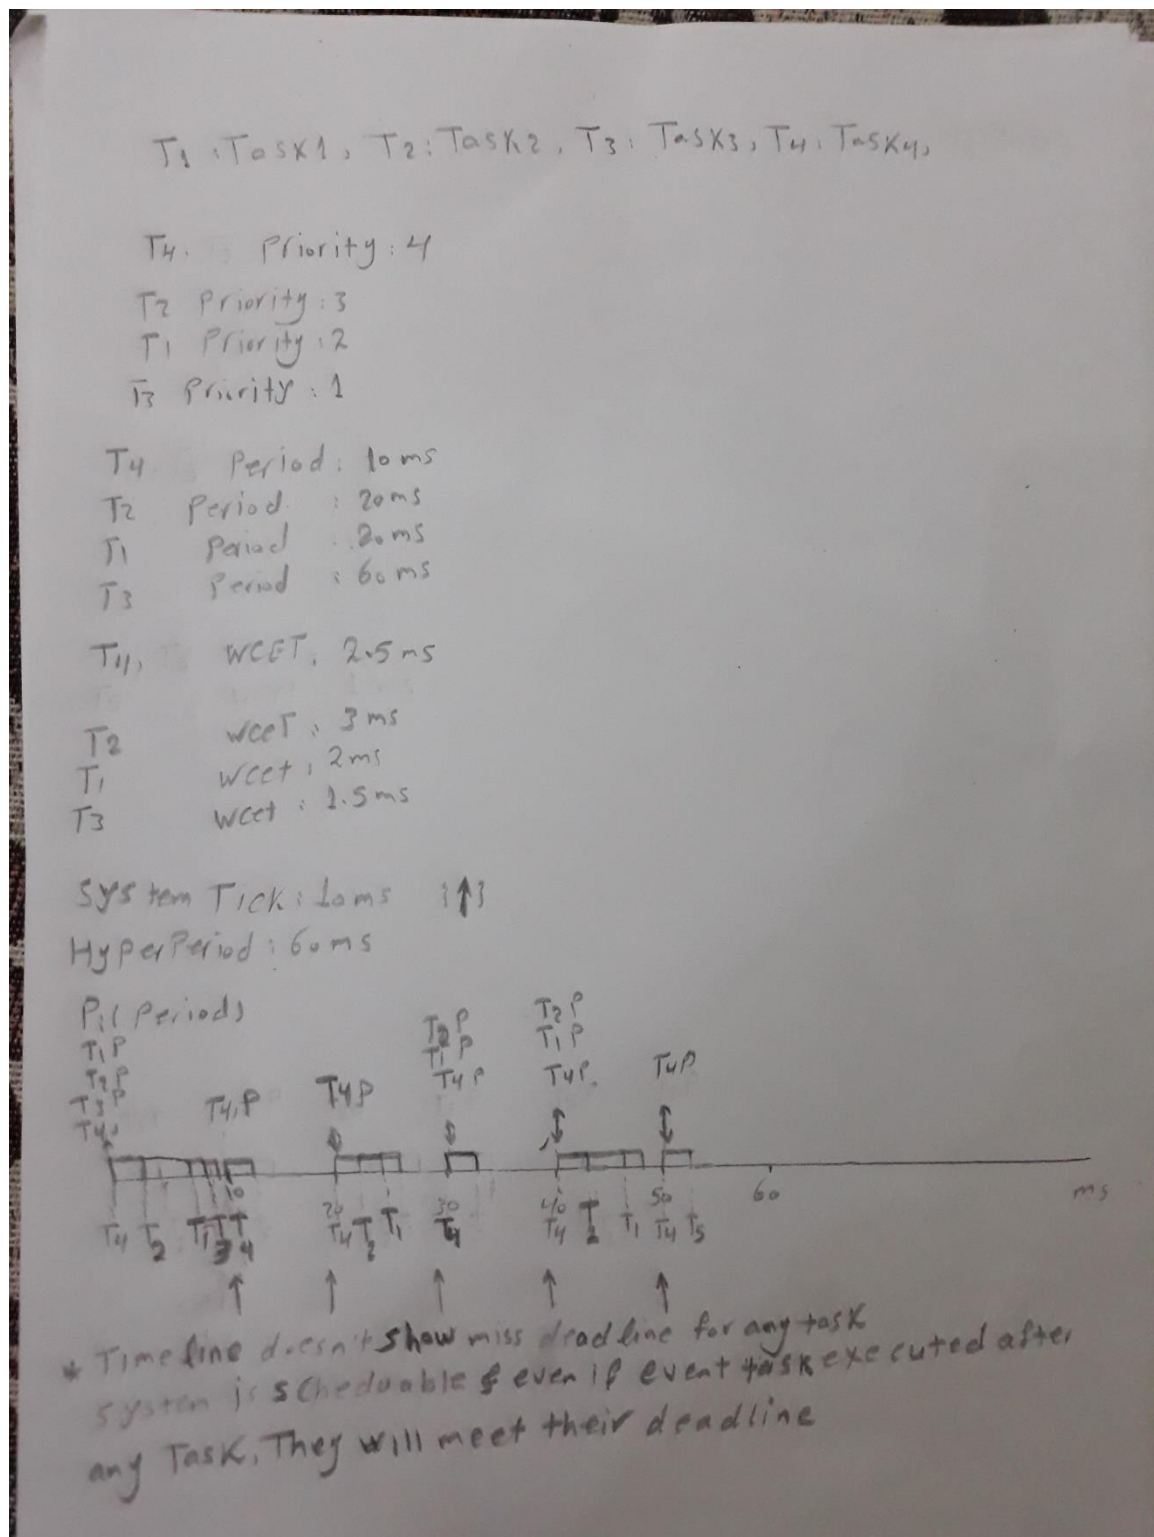 T1 : Task1, T2: Task2, T3: Task3, T4: Task4,
T4. Priority: 4
T2 Priority: 3
T1 Priority: 2
T3 Priority: 1
T4 Period: 10ms
T2 Period : 20ms
T1 Period : 20ms
T3 Period : 60ms
T4, WCET. 2.5ms
T2 WCET: 3ms
T1 Wcet: 2ms
T3 Wcet: 1.5ms
System Tick: 10ms {↑}
HyperPeriod: 60ms
P:(Period)
T1 P
T2 P
T3 P
T4
T4,P
T4P
T2 P
T1 P
T4 P
T2 P
T1 P
T4P.
T4P
10 20 30 40 50 60 ms
T4 T2 T1 T3 T4 T4 T2 T1 T4 T4 T2 T1 T4 T5
* Timeline doesn't show miss deadline for any task
system is scheduable & even if event task executed after
any Task, They will meet their deadline